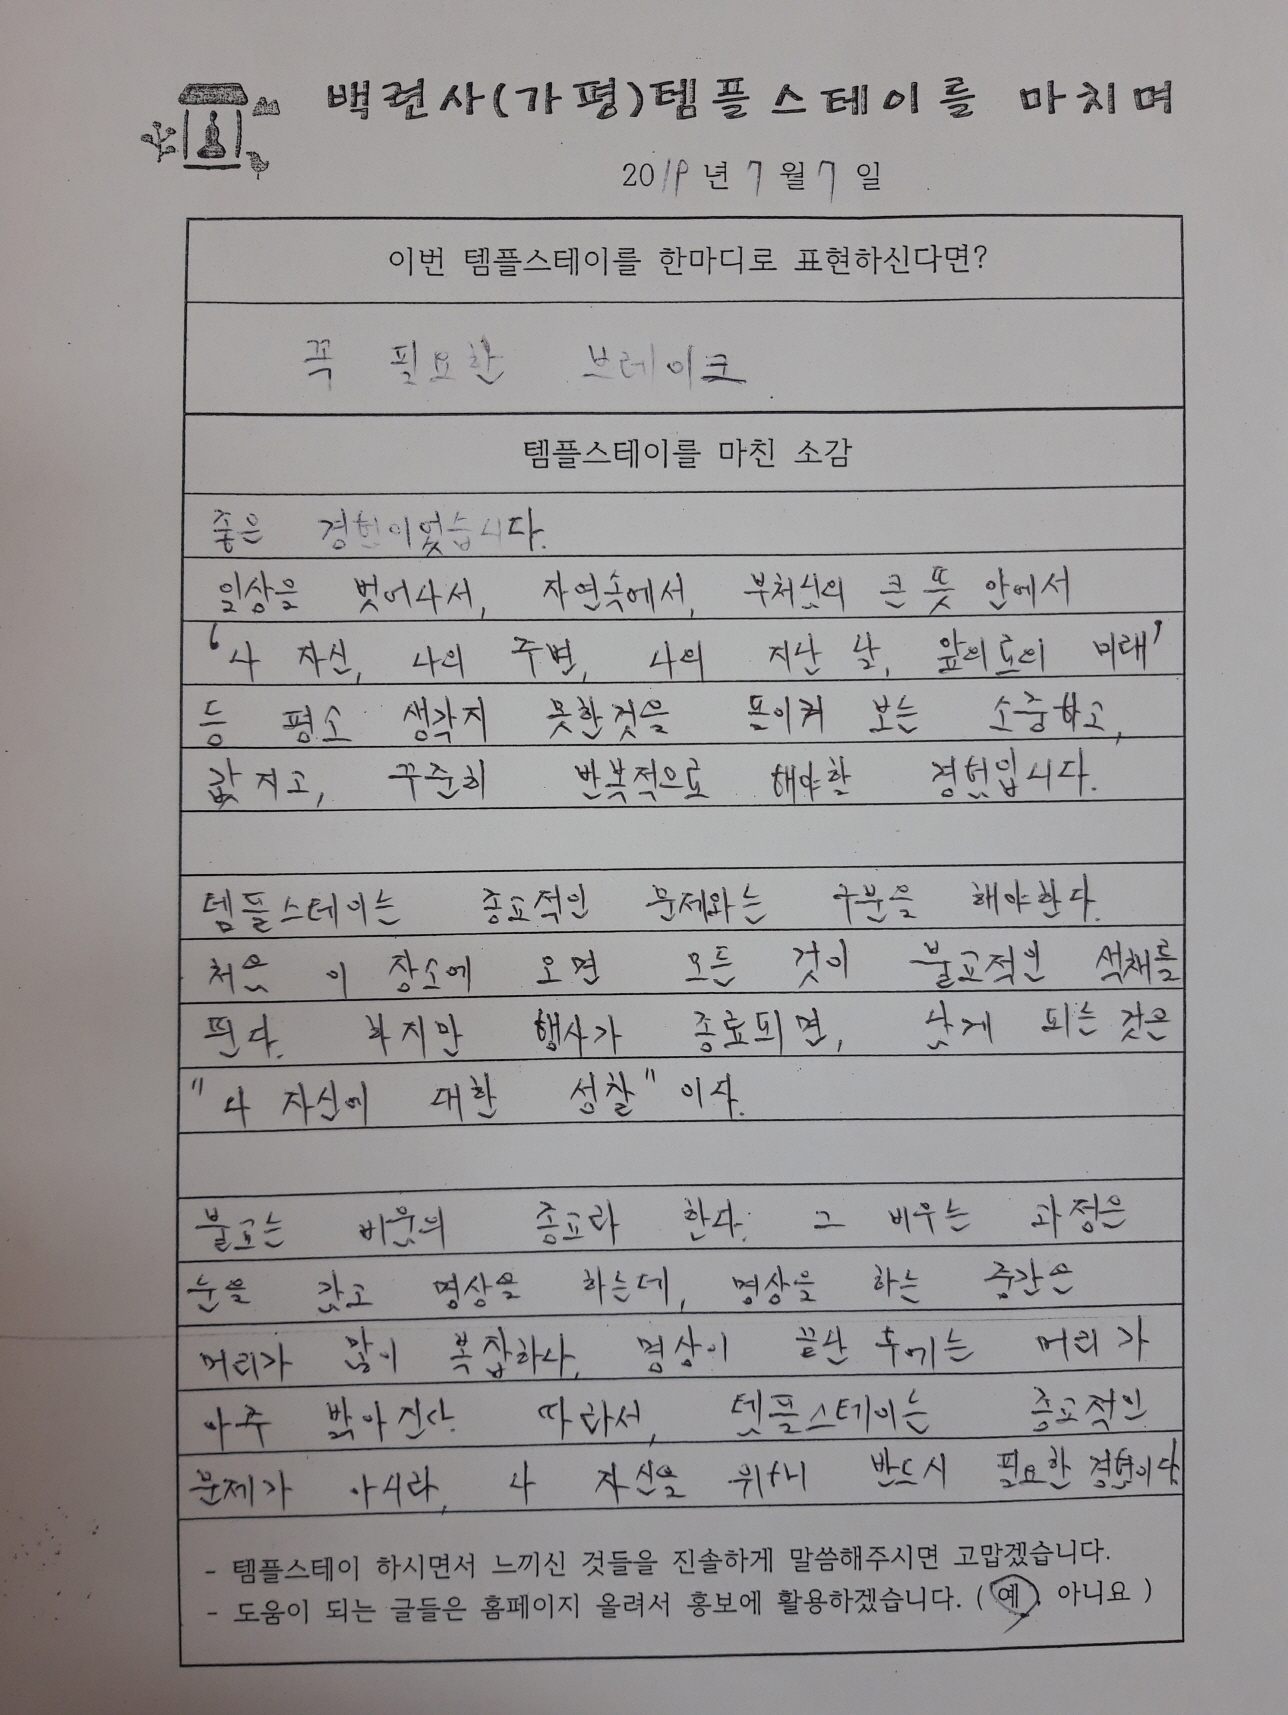 백련사(가평)템플스테이를 마치며
2019년 7월 7일
이번 템플스테이를 한마디로 표현하신다면?
꼭 필요한 브레이크
템플스테이를 마친 소감
좋은 경헌이었습니다.
일상을 벗어나서, 자연속에서, 부처님의 큰 뜻 안에서
'나 자신, 나의 주변, 나의 지난 날, 앞으로의 미래'
등 평소 생각지 못한것을 돌이켜 보는 소중하고,
값지고, 꾸준히 반복적으로 해야할 경험입니다.
템플스테이는 종교적인 문제와는 구분을 해야한다.
처음 이 장소에 오면 모든 것이 불교적인 색채를
띈다. 하지만 행사가 종료되면, 남게 되는 것은
"나 자신에 대한 성찰" 이다.
불교는 비움의 종교라 한다. 그 비우는 과정은
눈을 감고 명상을 하는데, 명상을 하는 중간은
머리가 많이 복잡하나, 명상이 끝난 후에는 머리가
아주 밝아진다. 따라서, 템플스테이는 종교적인
문제가 아니라, 나 자신을 위해 반드시 필요한 경험이다.
- 템플스테이 하시면서 느끼신 것들을 진솔하게 말씀해주시면 고맙겠습니다.
- 도움이 되는 글들은 홈페이지 올려서 홍보에 활용하겠습니다. ( 예, 아니요 )